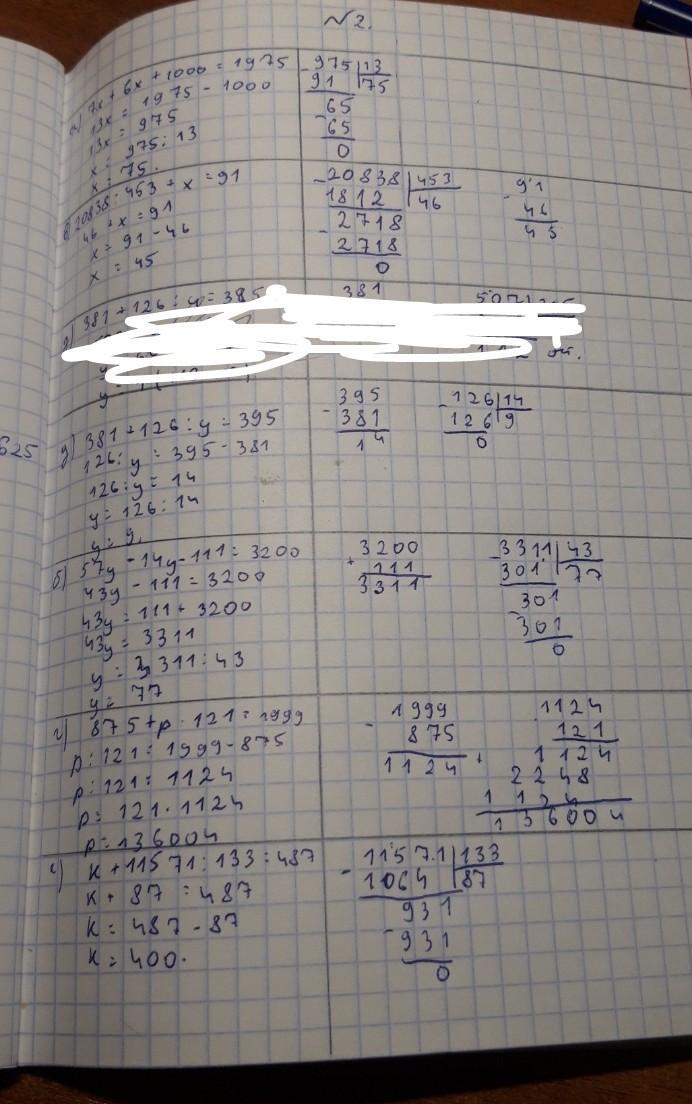 №2.
а) 7x + 6x + 1000 = 1975
13x = 1975 - 1000
13x = 975
x = 975 : 13
x = 75.
- 975 | 13
91 | 75
65
- 65
0
в) 20838 : 453 + x = 91
46 + x = 91
x = 91 - 46
x = 45
- 20838 | 453
1812 | 46
2718
- 2718
0
- 91
46
45
381 + 126 : y = 385
381
625
д) 381 + 126 : y = 395
126 : y = 395 - 381
126 : y = 14
y = 126 : 14
y = 9.
- 395
381
14
- 126 | 14
126 | 9
0
б) 57y - 14y - 111 = 3200
43y - 111 = 3200
43y = 111 + 3200
43y = 3311
y = 3311 : 43
y = 77
+ 3200
111
3311
- 3311 | 43
301 | 77
301
- 301
0
г) 875 + p : 121 = 1999
p : 121 = 1999 - 875
p : 121 = 1124
p = 121 · 1124
p = 136004
- 1999
875
1124
1124
121
+ 1124
2248
1124
136004
k + 11571 : 133 = 487
k + 87 = 487
k = 487 - 87
k = 400.
- 11571 | 133
1064 | 87
931
- 931
0